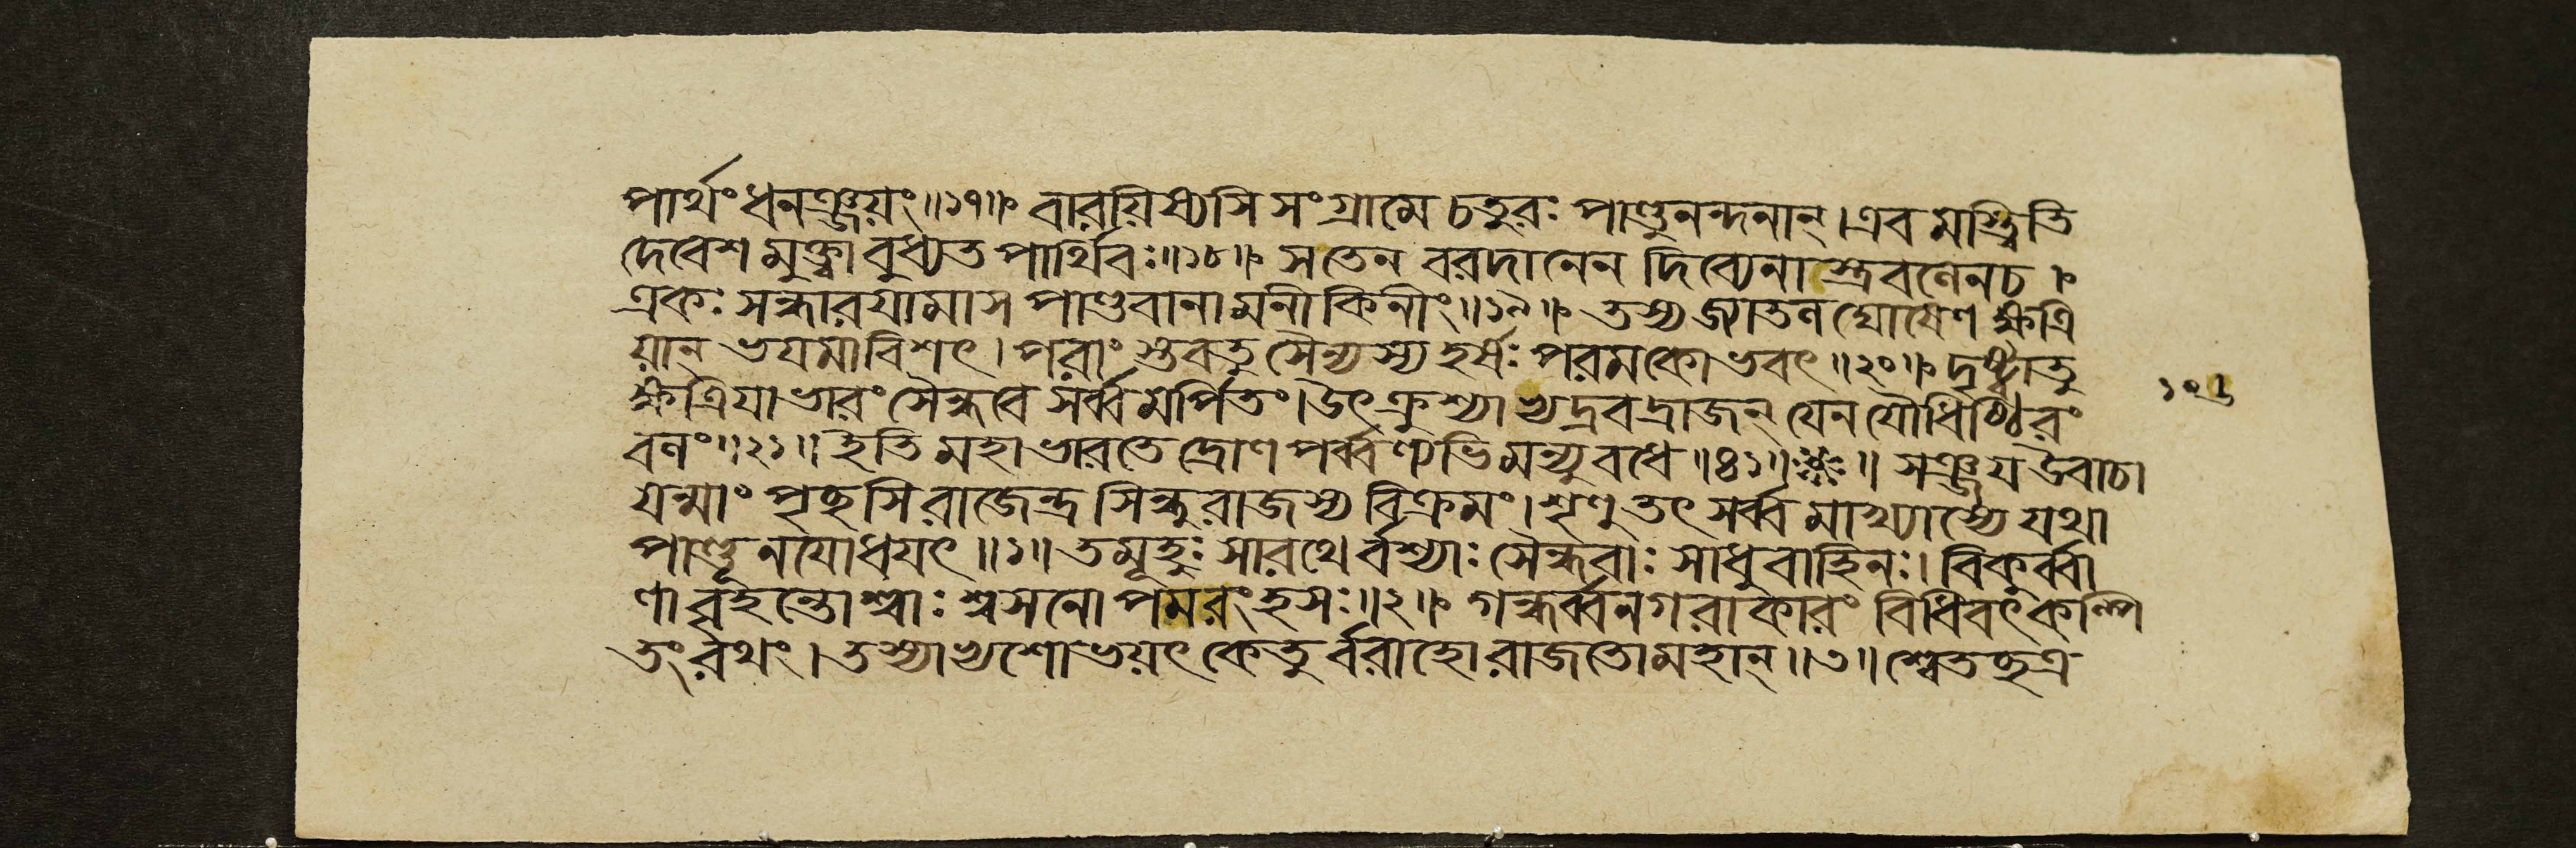 পার্থংধনঞ্জয়ং॥১৭॥ বারয়িষ্যসি সংগ্রামে চতুরঃ পাণ্ডুনন্দনান্।এবমস্ত্বিতি
দেবেশমুক্ত্বাবুধ্যত পার্থিবঃ॥১৮॥ সতেন বরদানেন দিব্যেনাস্ত্রবলেনচ।
একঃ সন্ধারয়ামাস পাণ্ডবানামনীকিনীং॥১৯॥ তস্যজ্যাতলঘোষেণ ক্ষত্রি
য়ান্ ভয়মাবিশৎ।পরাংস্তুবতু সৈন্যস্য হর্ষঃ পরমকোভবৎ॥২০॥ দৃষ্ট্বাতু
ক্ষত্রিয়াভারং সৈন্ধবে সর্ব্বমর্পিতং।উৎক্রুশ্যাভ্যদ্রবদ্রাজন্ যেন যৌধিষ্ঠিরং
বলং॥২১॥ইতি মহাভারতে দ্রোণপর্ব্বণ্যভিমন্যুবধে॥৪১॥ ॥ সঞ্জয়উবাচ।
যন্মাং পৃচ্ছসি রাজেন্দ্র সিন্ধুরাজস্য বিক্রমং।শৃণু তৎ সর্ব্বমাখ্যাস্যে যথা
পাণ্ডূনযোধয়ৎ॥১॥ তমূহুঃ সারথের্বশ্যাঃ সৈন্ধবাঃ সাধুবাহিনঃ।বিকুর্ব্বা
ণাবৃহন্তোশ্বাঃ শ্বসনোপমরংহসঃ॥২॥ গন্ধর্ব্বনগরাকারং বিধিবৎকল্পি
তংরথং।তস্যাভ্যশোভয়ৎ কেতুর্বরাহোরাজতোমহান্॥৩॥শ্বেতচ্ছত্র